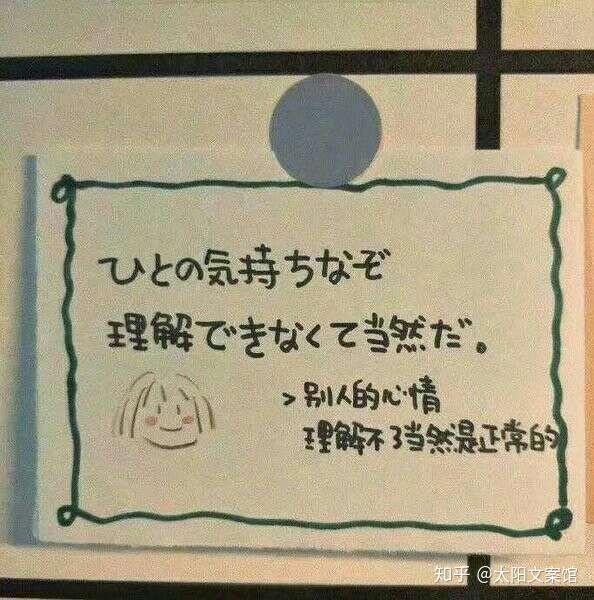 ひとの気持ちなぞ
理解できなくて当然だ。
>别人的心情
理解不了当然是正常的
知乎 @太阳文案馆